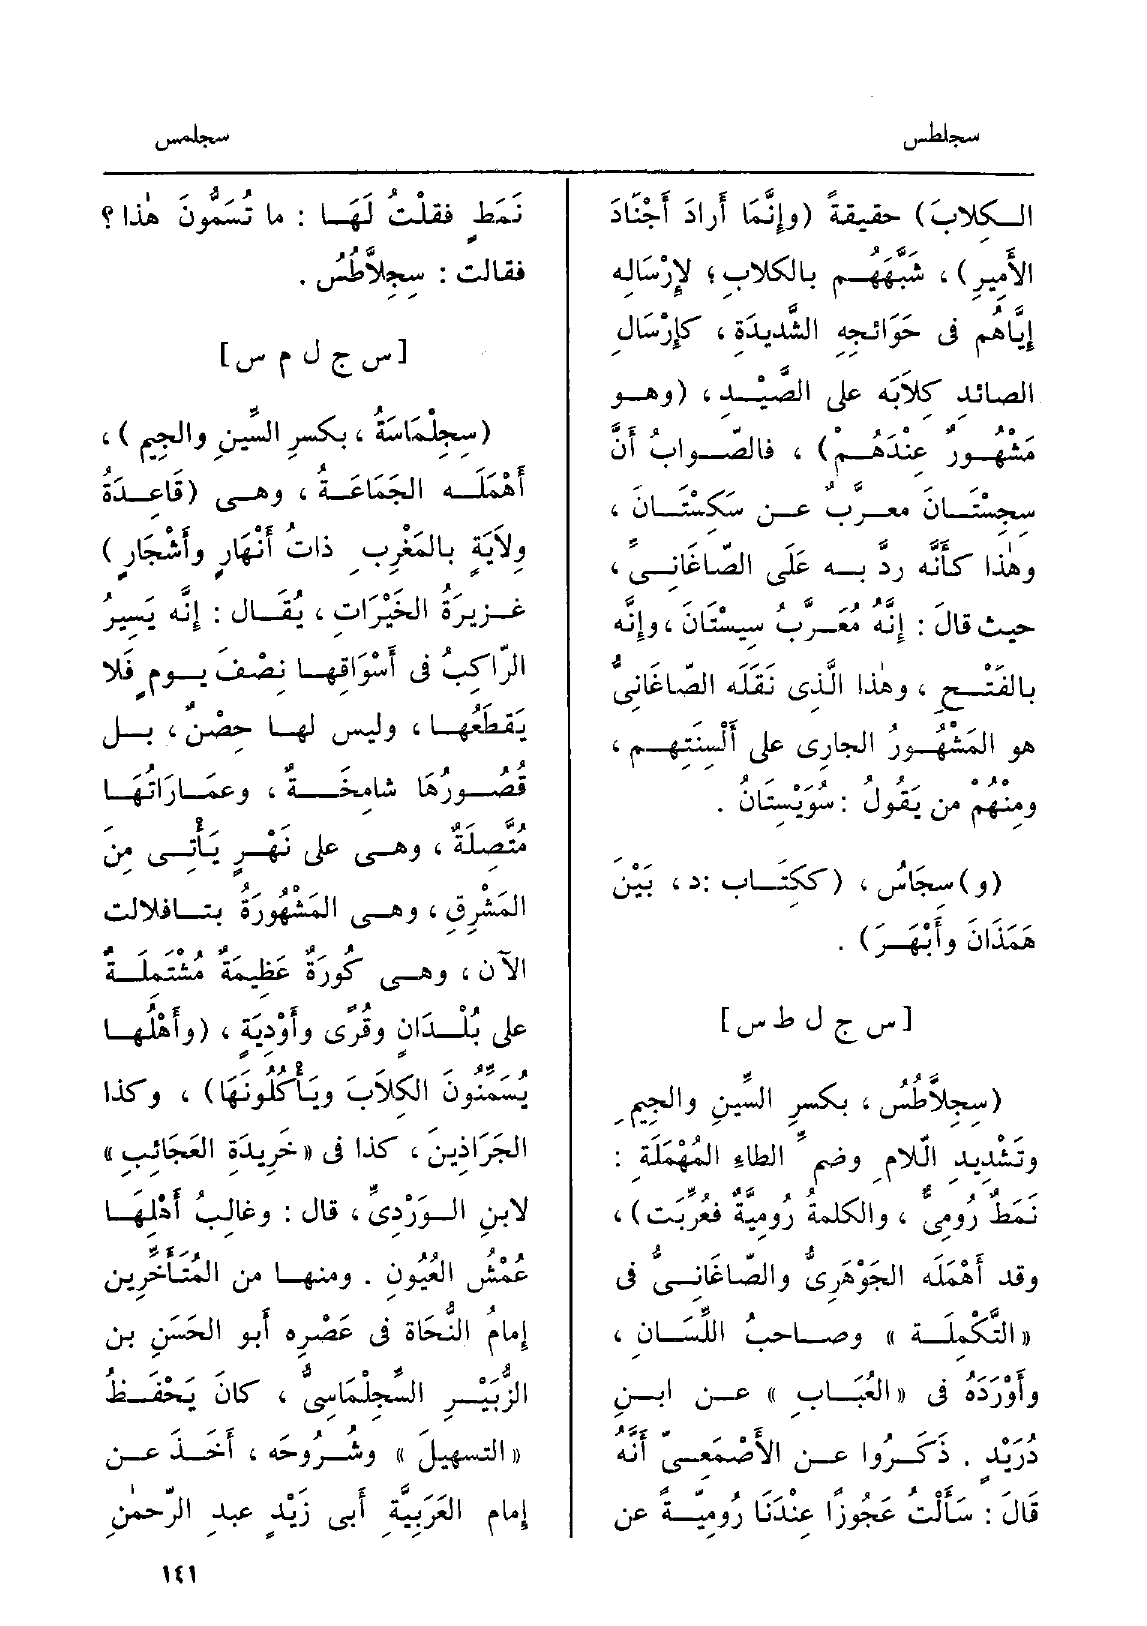 سجلطس
سجلمس
الكلاب) حقيقةً (وإنَّمَا أَرادَ أَجْنَادَ
الأَميرِ) ، شَبَّهَهُم بالكلابِ؛ لإِرْسَاله
إِيَّاهُم فى حَوَائجِه الشَّديدَة ، كإِرْسَال
الصائد كِلاَبَه على الصَّيْد ، (وهو
مَشْهُورٌ عنْدَهُمْ) ، فالصّوابُ أَنَّ
سجسْتَانَ معرَّبٌ عن سَكِسْتَانَ ،
وهٰذا كأَنَّه ردَّ به عَلَى الصّاغَانِىّ ،
حيث قالَ : إِنَّهُ مُعَرَّبُ سِيسْتَانَ ، وإِنَّه
بالفَتْح ، وهٰذا الَّذى نَقَلَه الصّاغَانىُّ
هو المَشْهُورُ الجارِى على أَلْسِنَتِهم ،
ومنْهُمْ من يَقُولُ : سُوَيْسْتَانُ .
(و) سِجَاسُ ، (ككتَاب :د، بَيْنَ
هَمَذَانَ وأَبْهَرَ) .
[س ج ل ط س]
(سِجِلاَّطُسُ ، بكسرِ السِّينِ والجِيمِ
وتَشْديد اللّامِ وضمّ الطاءِ المُهْمَلَة :
نَمَطٌ رُومىٌّ ، والكلمةُ رُوميَّةٌ فعُرِّبَت) ،
وقد أَهْمَلَه الجَوْهَرىُّ والصّاغَانِىُّ فى
«التَّكْمِلَة » وصاحبُ اللِّسَان ،
وأَوْرَدَهُ فى «العُبَاب » عن ابنِ
دُرَيْدٍ . ذَكَرُوا عن الأَصْمَعىّ أَنَّهُ
قَالَ : سَأَلْتُ عَجُوزًا عِنْدَنَا رُوميّةً عن
نَمَطٍ فقلْتُ لَهَا : ما تُسَمُّونَ هٰذا ؟
فقالت : سِجِلاَّطُسُ .
[س ج ل م س]
(سِجِلْمَاسَةُ ، بكسرِ السِّينِ والجِيمِ) ،
أَهْمَلَه الجَمَاعَةُ ، وهى (قَاعِدَةُ
وِلاَيَةٍ بالمَغْرِبِ ذاتُ أَنْهَارٍ وأَشْجَارٍ)
غزيرَةُ الخَيْرَات ، يُقَال : إِنَّه يَسِيرُ
الرّاكبُ فى أَسْوَاقهَا نصْفَ يومٍ فَلا
يَقطَعُها ، وليس لها حِصْنٌ ، بل
قُصُورُهَا شامخَةٌ ، وعمَارَاتُهَا
مُتَّصِلَةٌ ، وهى على نَهْرٍ يَأْتِى مِنَ
المَشْرِقِ ، وهى المَشْهُورَةُ بتافلالت
الآنَ ، وهى كُورَةٌ عَظِيمَةٌ مُشْتَمِلَةٌ
على بُلْدَانٍ وقُرًى وأَوْدِيَةٍ ، (وأَهْلُهَا
يُسَمِّنُونَ الكلَابَ ويَأْكُلُونَهَا) ، وكذا
الجَرَاذِينَ ، كذا فى «خَرِيدَةِ العَجَائبِ»
لابنِ الوَرْدىّ ، قال : وغالبُ أَهْلِهَا
عُمْشُ العُيُونِ . ومنها من المُتَأَخِّرِين
إِمامُ النُّحَاةِ فى عَصْرِهِ أَبو الحَسَنِ بن
الزُّبَيْرِ السِّجِلْمَاسىُّ ، كانَ يَحْفَظُ
«التسهيلَ » وشُرُوحَه ، أَخَذَ عن
إِمام العَرَبيَّةِ أَبى زَيْدٍ عبدِ الرّحمٰنِ
١٤١